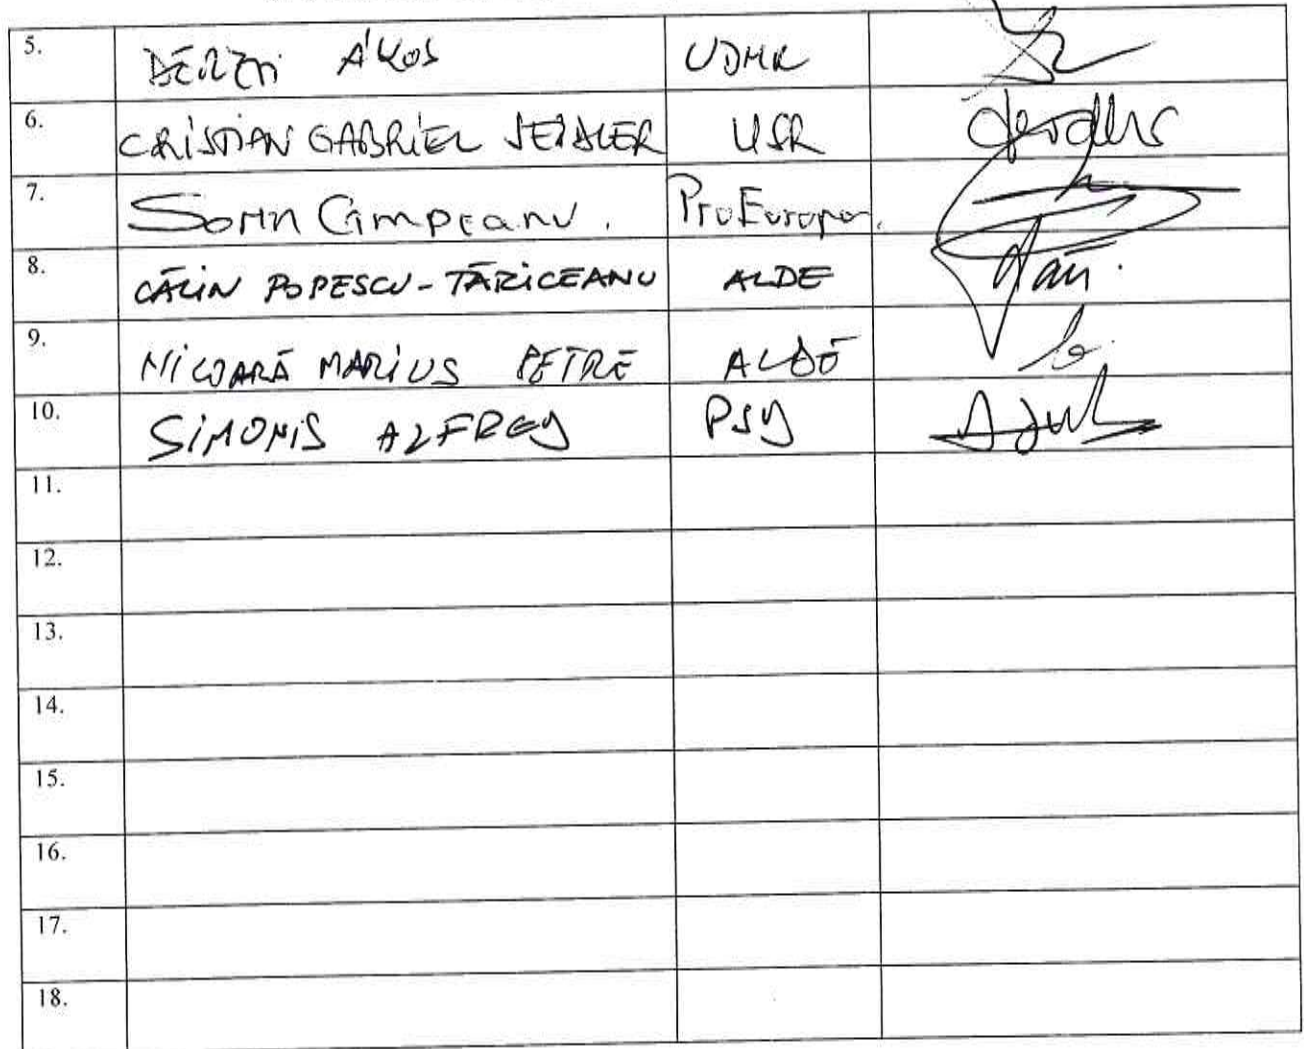 5. DERZSI ÁKOS UDMR
6. CRISTIAN GABRIEL SEIDLER USR
7. Sorin Cîmpeanu. Pro Europa.
8. CĂLIN POPESCU-TĂRICEANU ALDE
9. NICOARĂ MARIUS PETRE ALDE
10. SIMONIS ALFRED PSD
11.
12.
13.
14.
15.
16.
17.
18.